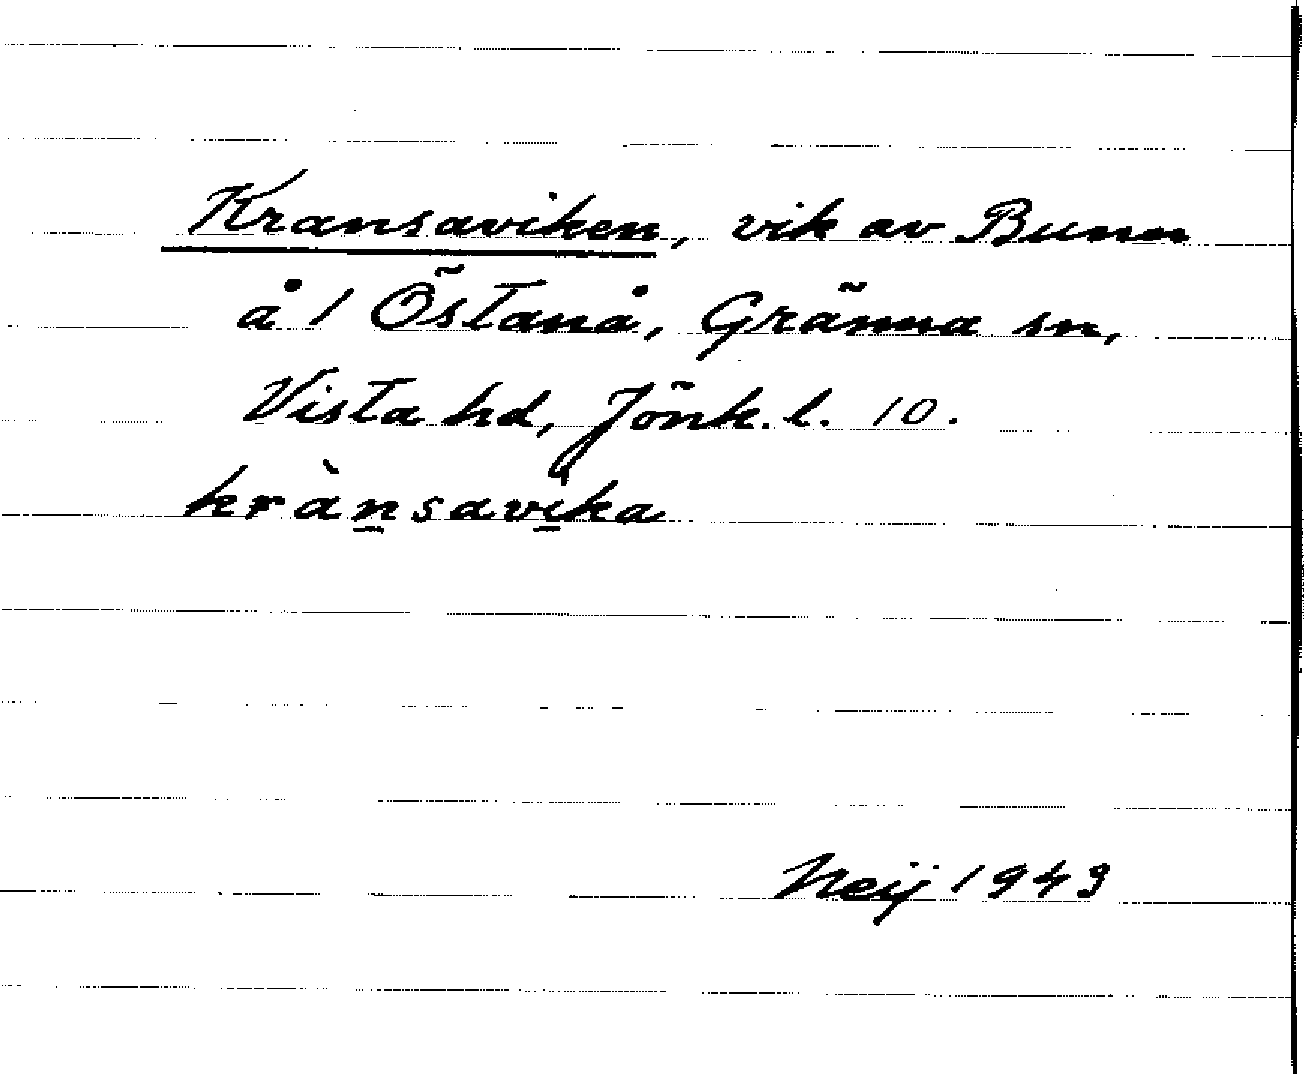 Kransaviken, vik av Bunn
å 1 Östanå, Gränna sn,
Vista hd, Jönk. l. 10.
krànsavika
Neij 1943